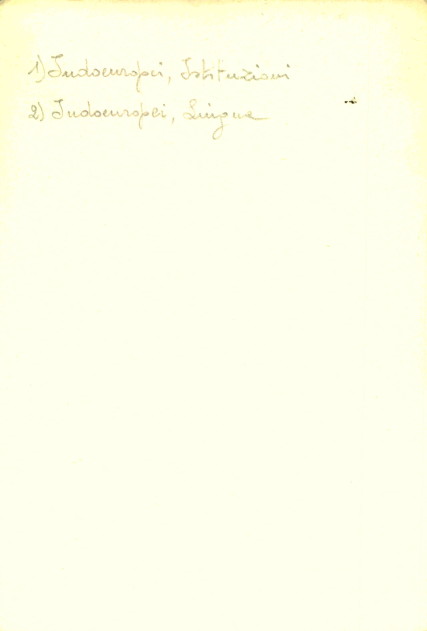 1) Indoeuropei, Istituzioni
2) Indoeuropei, Lingua